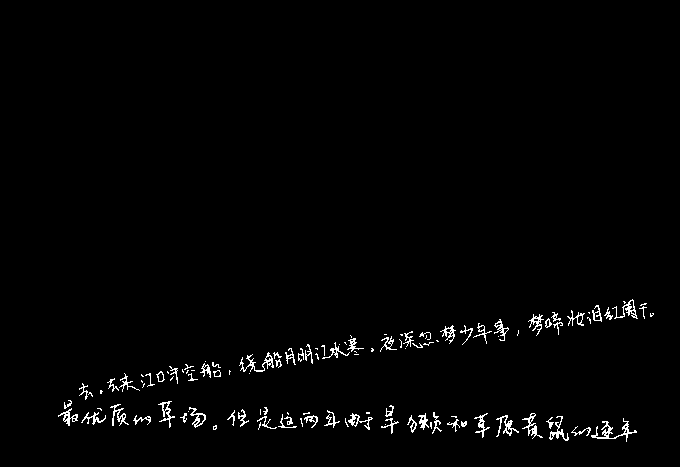 去。去来江口守空船，绕船月明江水寒。夜深忽梦少年事，梦啼妆泪红阑干。
最优质的草场。但是这两年由于旱獭和草原黄鼠的逐年